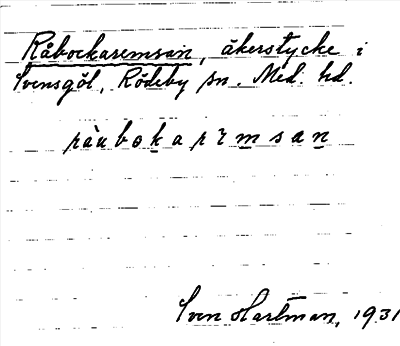 Råbockaremsan, åkerstycke i
Svensgöl, Rödeby sn. Med. hd.
Sven Hartman, 1931